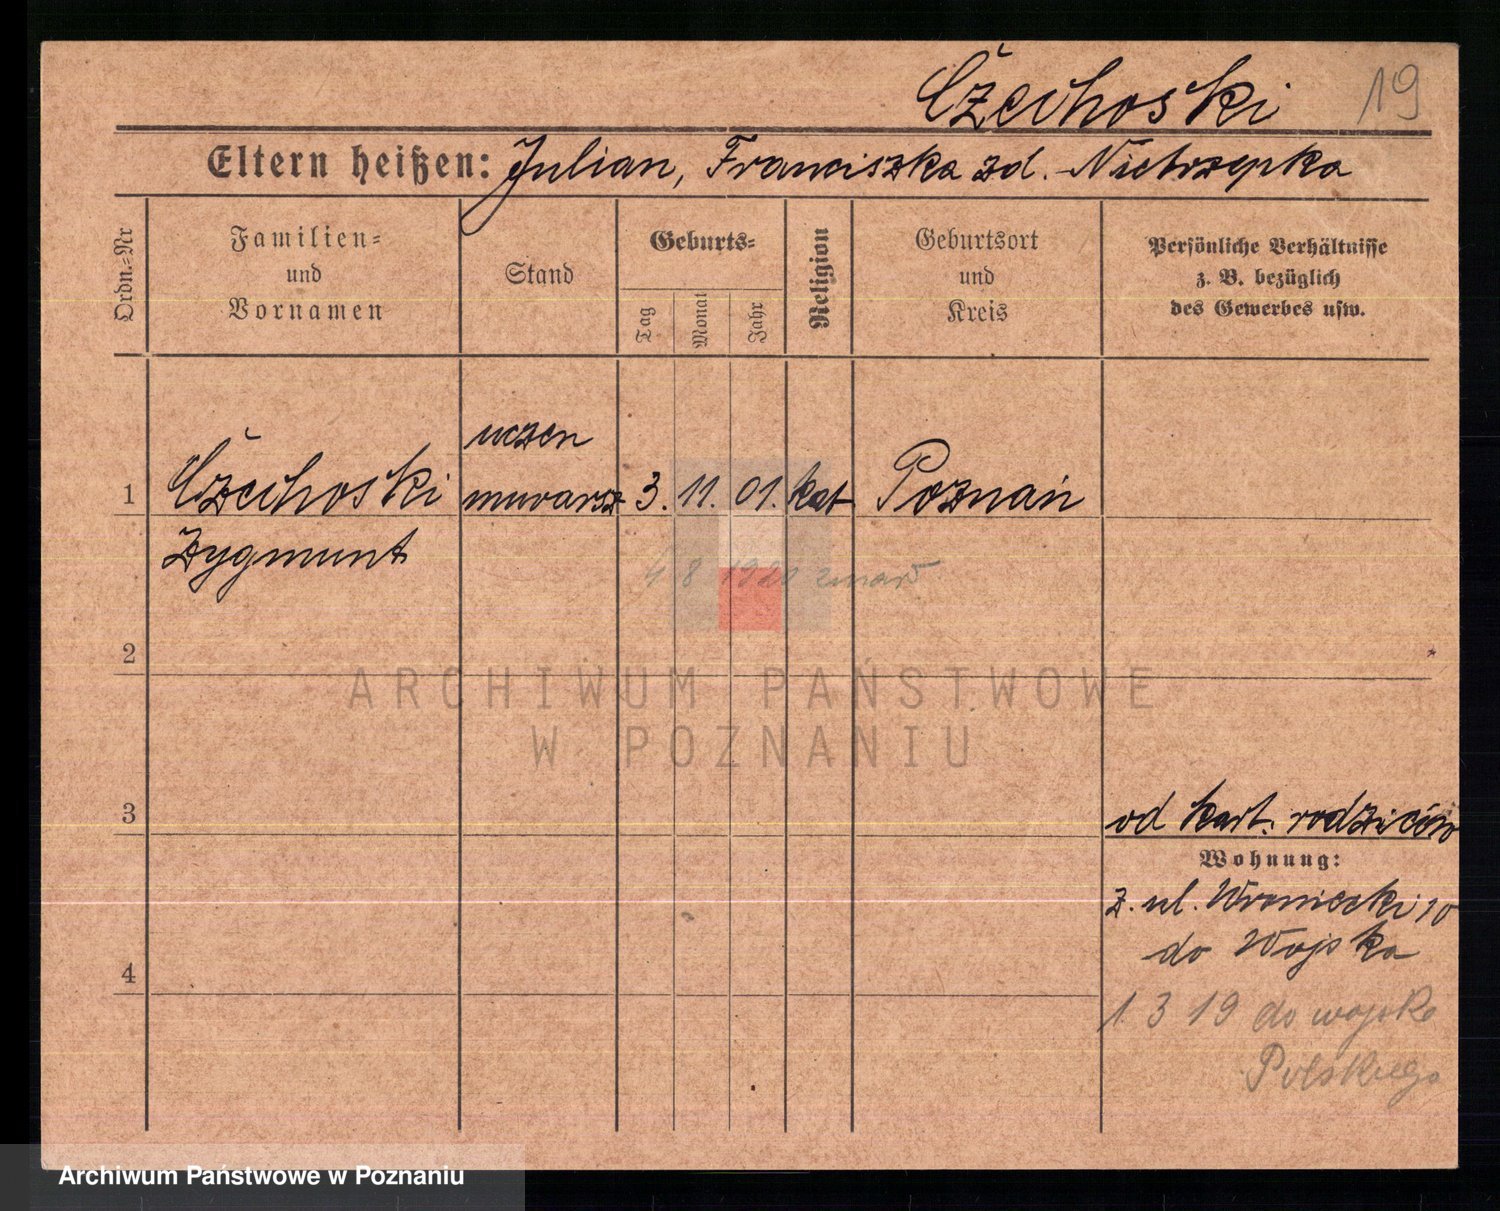 Czechoski 19
Eltern heißen: Julian, Franciszka zd. Nietrzepka
Ordn.=Nr
Familien=
und
Vornamen
Stand
Geburts=
Tag
Monat
Jahr
Religion
Geburtsort
und
Kreis
Persönliche Verhältnisse
z. B. bezüglich
des Gewerbes usw.
uczen
1 Czechoski murarsz 3. 11. 01. kat Poznań
Zygmunt
4 8 1920 zmarł
2
ARCHIWUM PAŃSTWOWE
W POZNANIU
3
od kart. rodziców
Wohnung:
z. ul. Wroniecki 10
do Wojska
4
1 3 19 do wojska
Polskiego
Archiwum Państwowe w Poznaniu